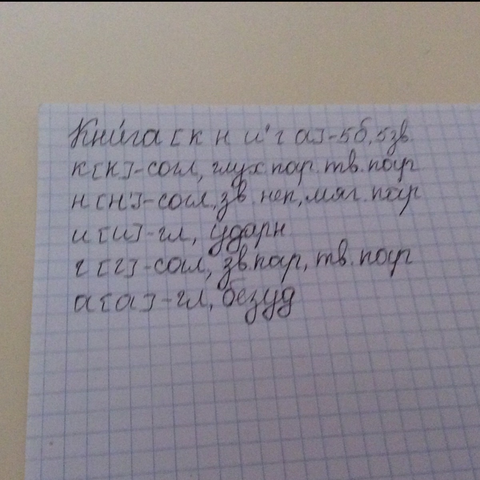 Кни́га [к н и́ г а]-5б, 5зв.
к [к]-согл, глух пар. тв. пар
н [н']-согл, зв. неп, мяг. пар
и [и]-гл, ударн
г [г]-согл, зв. пар, тв. пар
а [а]-гл, безуд